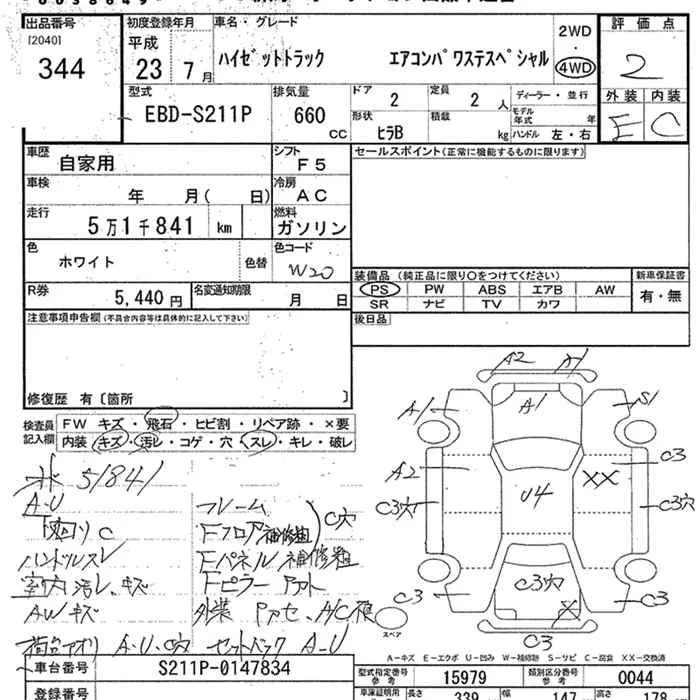 出品番号
[2040]
344
初度登録年月
平成
23年 7月
車名・グレード
ハイゼットトラック エアコンパワステスペシャル
2WD
4WD
評価点
2
外装 内装
E C
型式
EBD-S211P
排気量
660
CC
ドア
2
定員
2 人
形状
ヒラB
積載
kg
ディーラー・並行
モデル年式 年
ハンドル 左・右
車歴
自家用
シフト
F5
セールスポイント(正常に機能するものに限ります)
車検
年 月( 日)
冷房
AC
走行
5万1千841 km
燃料
ガソリン
色
ホワイト
色替
色コード
W20
装備品 (純正品に限り○をつけてください)
PS PW ABS エアB AW
SR ナビ TV カワ
新車保証書
有・無
R券
5,440 円
名変通知期限
月 日
注意事項申告欄(不具合内容等は具体的に記入して下さい)
後日品
修復歴 有〔箇所 〕
検査員
記入欄
FW キズ・飛石・ヒビ割・リペア跡・×要
内装 キズ・汚レ・コゲ・穴・スレ・キレ・破レ
51841
A・U
下回りC
ハンドルスレ
室内汚レ、キズ
AWキズ
荷台アオリ A・U・C穴 セットバック A-U
フレーム
Fフロア補修粗
C穴
Fパネル補修粗
Fピラー
外装 Pカセ、A/C
A2 A1
A1 A1 S1
A2 U4 XX C3
C3穴 C3穴
C3 C3穴 X C3
C3
スペア
A-キズ E-エクボ U-凹み W-補修跡 S-サビ C-腐食 XX-交換済
車台番号
S211P-0147834
型式指定番号
参考
15979
類別区分番号
参考
0044
登録番号
車庫証明用
長さ
339
幅
147
高さ
178